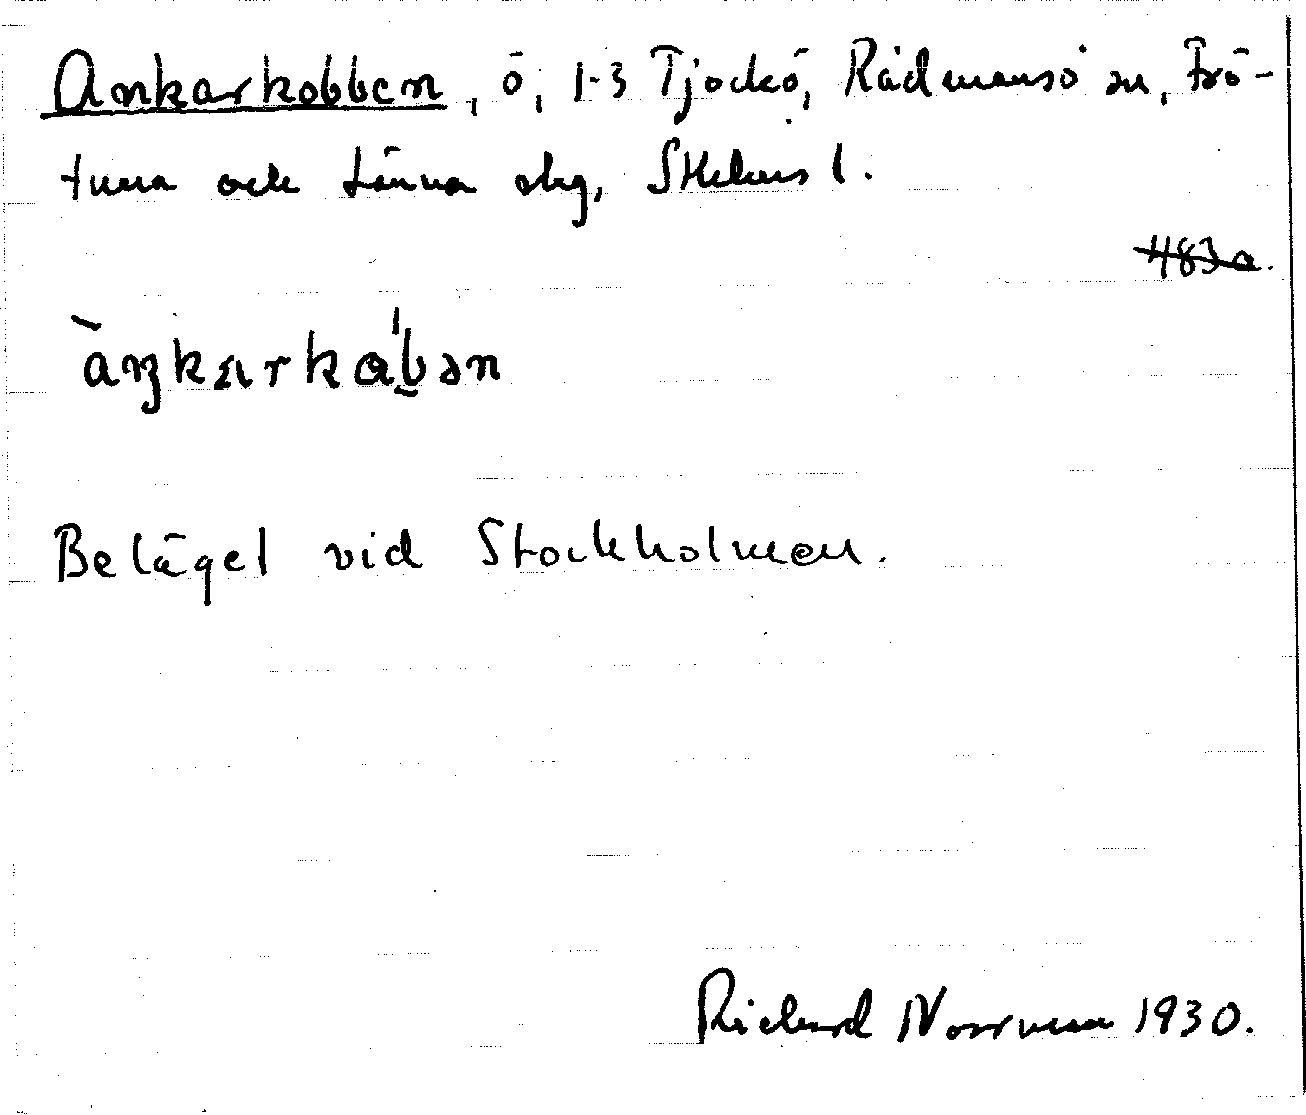 Ankarkobben, ö, 1-3 Tjockö, Rådmansö sn, Frö-
tuna och Länna skg, Sthlms l.
483a.
àŋkarkåb̠ən
Beläget vid Stockholmen.
Richard Norrman 1930.